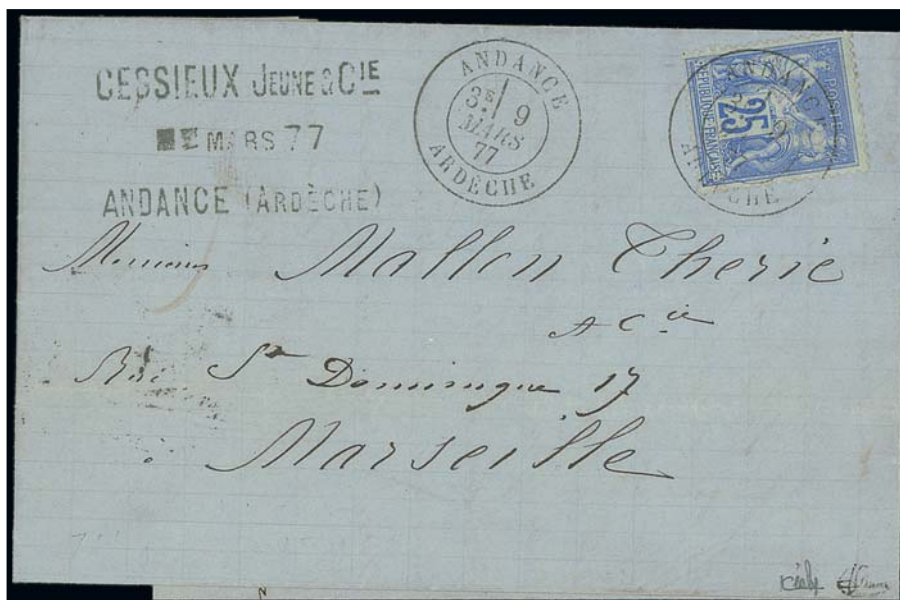 CESSIEUX JEUNE & CIE
MARS 77
ANDANCE (ARDÈCHE)
ANDANCE
3E 9
MARS
77
ARDÈCHE
ANDANCE
9
ARDÈCHE
POSTES
25
REPUBLIQUE FRANÇAISE
Messieurs Mallen Therie
& Cie
Rue St Dominique 17
Marseille